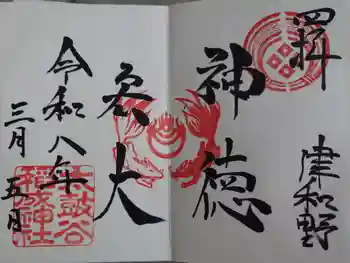 奉拝
津和野
神徳
大
令和八年
三月五日
太鼓谷
稲成神社